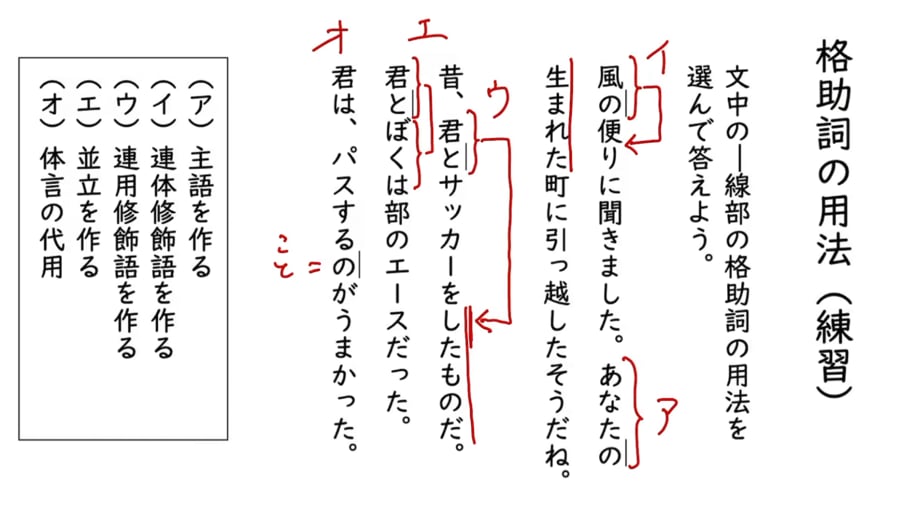 格助詞の用法（練習）
文中の―線部の格助詞の用法を
選んで答えよう。
イ
風の便りに聞きました。あなたの
ア
生まれた町に引っ越したそうだね。
ウ
昔、君とサッカーをしたものだ。
エ
君とぼくは部のエースだった。
オ
君は、パスするのがうまかった。
＝こと
（ア）主語を作る
（イ）連体修飾語を作る
（ウ）連用修飾語を作る
（エ）並立を作る
（オ）体言の代用